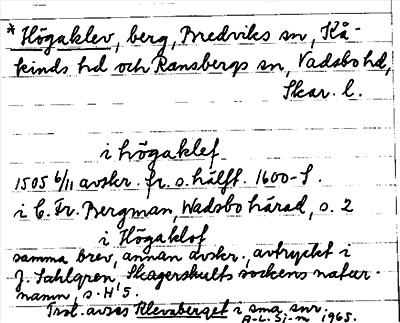 * Högaklev, berg, Bredviks sn, Kå-
kinds hd och Ransbergs sn, Vadsbo hd,
Skar. l.
i högaklef
1505 6/11 avskr. fr. s. hälft. 1600-t.
i C. Fr. Bergman, Wadsbo härad, s. 2
i Högaklof
samma brev, annan avskr., avtryckt i
J. Sahlgren, Skagershults sockens natur-
namn, s. H'5.
Trol. avses Klevaberget i sma snr.
A-L. Sj-m 1965.